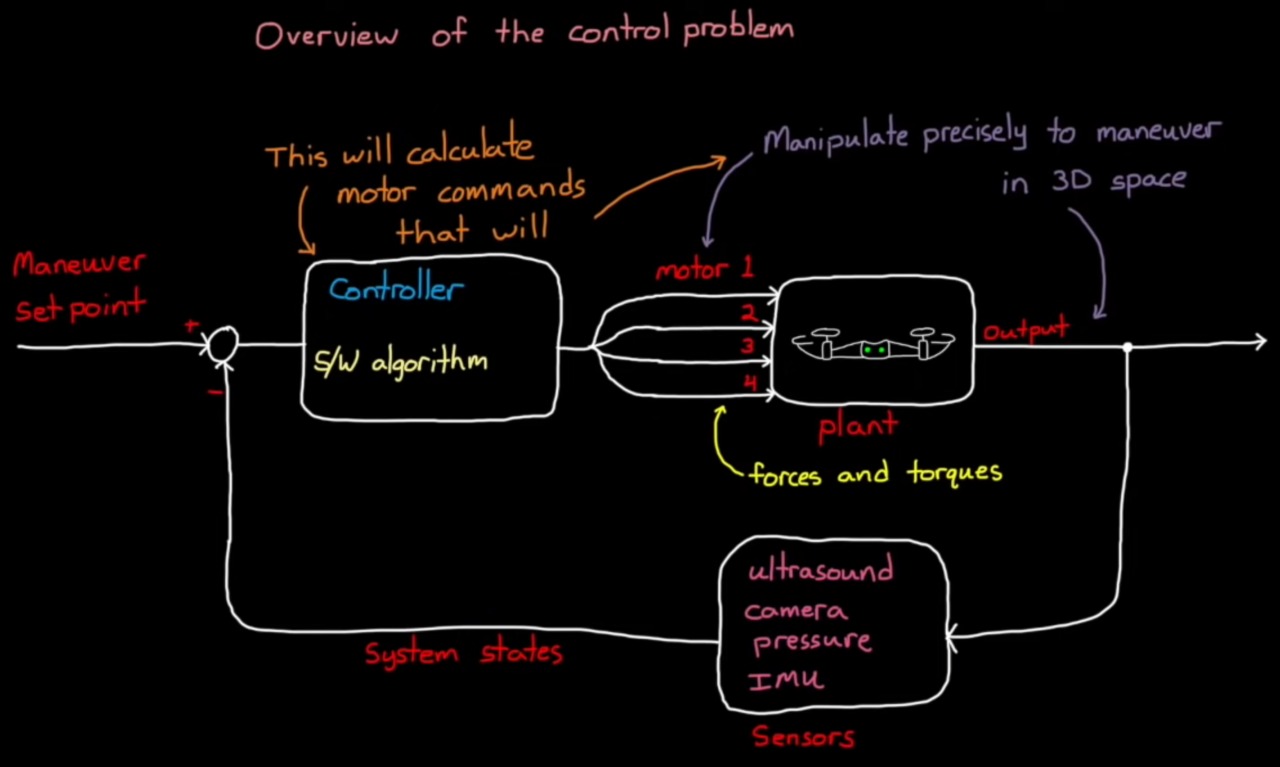 Overview of the control problem
This will calculate
motor commands
that will
Manipulate precisely to maneuver
in 3D space
Maneuver
Setpoint
+
-
Controller
S/W algorithm
motor 1
2
3
4
output
plant
forces and torques
ultrasound
camera
pressure
IMU
System states
Sensors